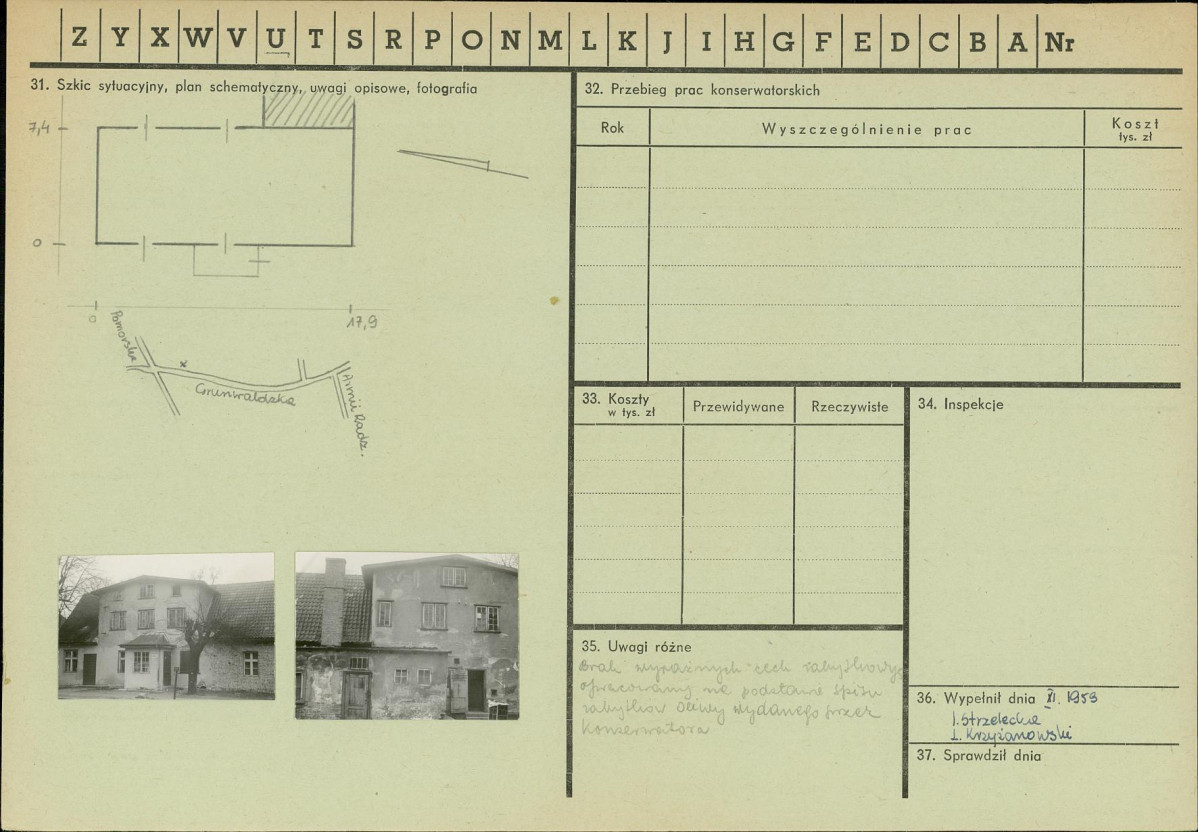 Z Y X W V U T S R P O N M L K J I H G F E D C B A Nr
31. Szkic sytuacyjny, plan schematyczny, uwagi opisowe, fotografia
7,4
0
0
17,9
Pomorska
Grunwaldzka
Armii Radz.
32. Przebieg prac konserwatorskich
Rok
Wyszczególnienie prac
Koszt
tys. zł
33. Koszty
w tys. zł
Przewidywane
Rzeczywiste
34. Inspekcje
35. Uwagi różne
Brak wyraźnych cech zabytkowych
opracowany na podstawie spisu
zabytków Oliwy wydanego przez
Konserwatora
36. Wypełnił dnia XI. 1959
J. Strzelecka
L. Krzyżanowski
37. Sprawdził dnia